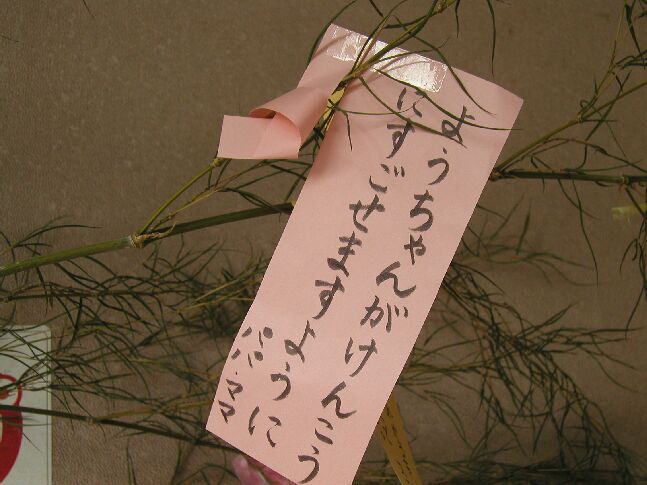 ようちゃんがけんこう
にすごせますように
パパ・ママ